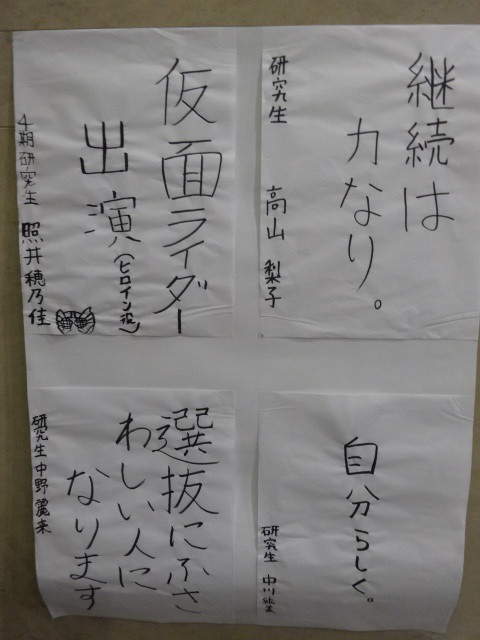 継続は
力なり。
研究生 高山 梨子
仮面ライダー
出演(ヒロイン役)
4期研究生 照井穂乃佳
自分らしく。
研究生 中川紘美
選抜にふさ
わしい人に
なります
研究生 中野麗来